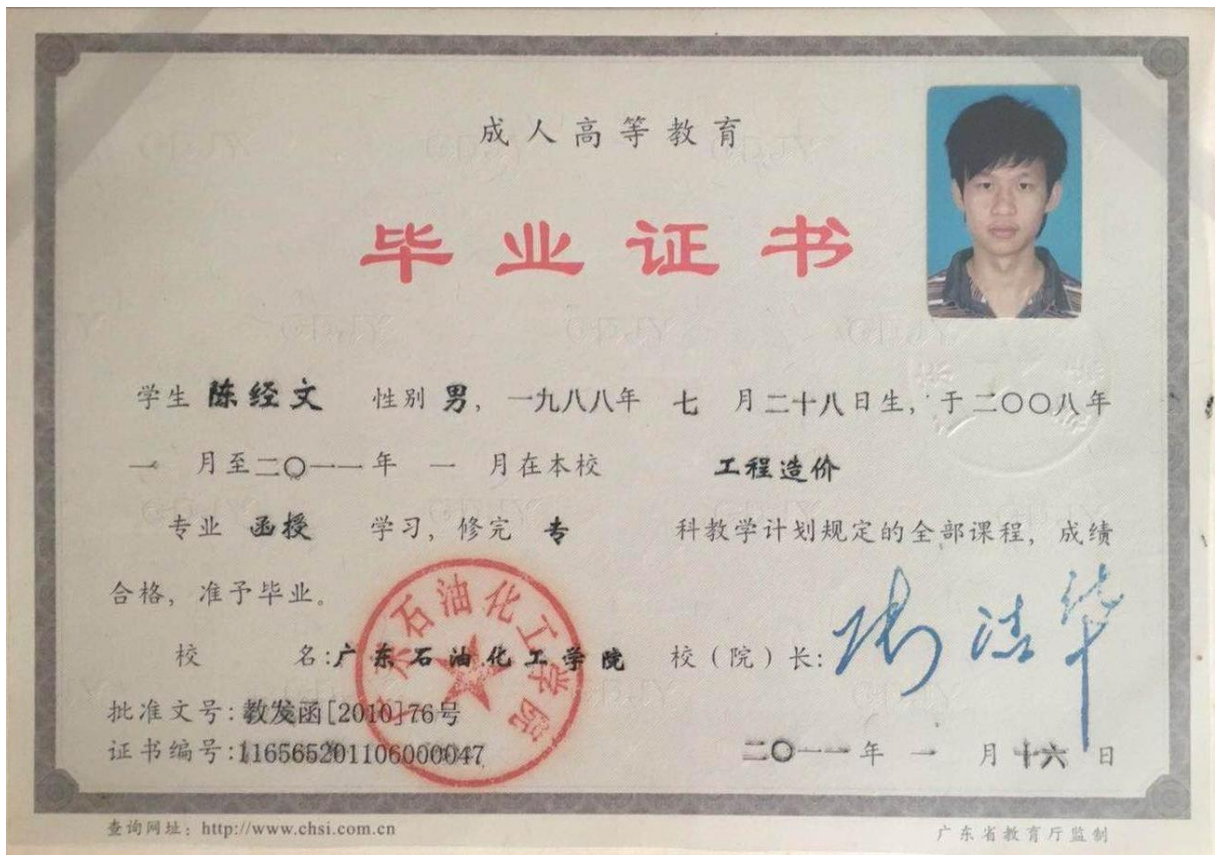 成人高等教育
毕业证书
学生 陈经文 性别 男, 一九八八年 七 月二十八日生, 于二〇〇八年
一 月至二〇一一年 一 月在本校 工程造价
专业 函授 学习, 修完 专 科教学计划规定的全部课程, 成绩
合格, 准予毕业。
校 名:广东石油化工学院 校(院)长:
广东石油化工学院
批准文号:教发函[2010]76号
证书编号:116565201106000047
二〇一一年 一 月 十六 日
查询网址: http://www.chsi.com.cn
广东省教育厅监制